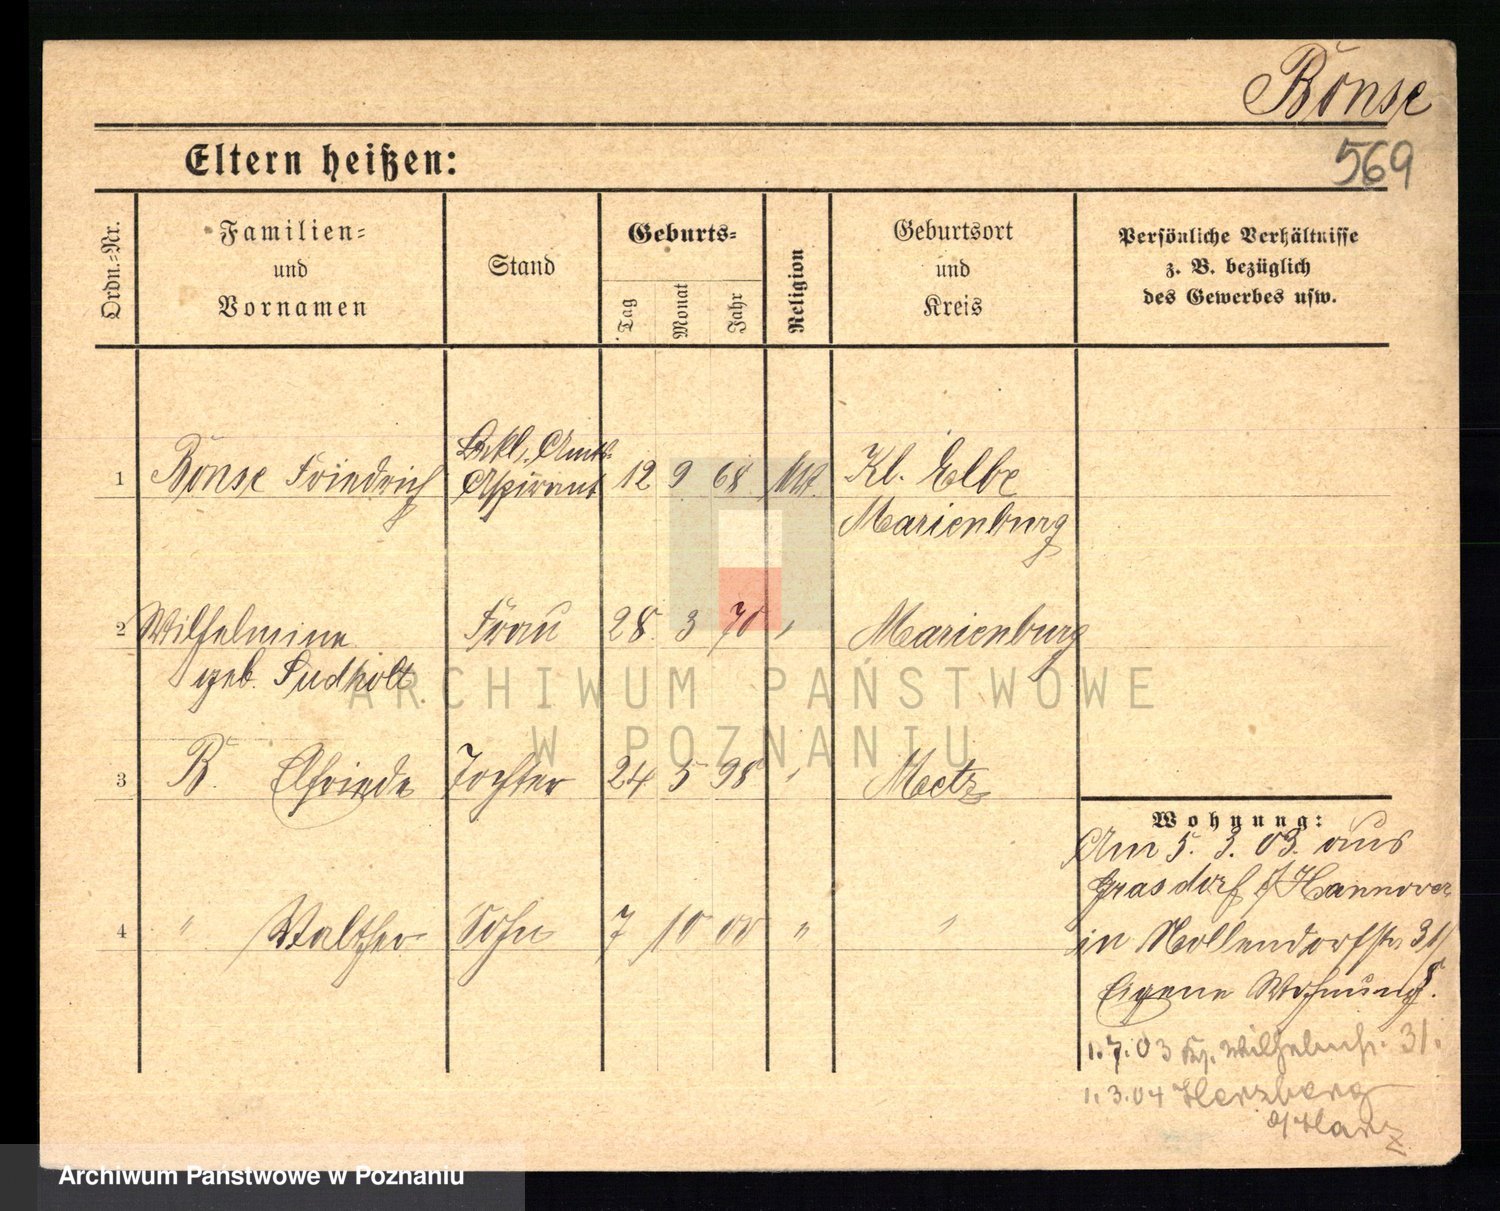 Bönse
569
Eltern heißen:
Ordn.-Nr.
Familien-
und
Vornamen
Stand
Geburts-
Tag
Monat
Jahr
Religion
Geburtsort
und
Kreis
Persönliche Verhältnisse
z. B. bezüglich
des Gewerbes usw.
1 Bönse Friedrich Amts- Aspirant 12 9 68 Kl. Elbe
Marienburg
2 Wilhelmine Frau 28. 3 70 " Marienburg
geb. Sudholt
3 B. Elfriede Tochter 24 5 98 " Metz
4 " Walther Sohn 7 10 00 " "
Wohnung:
Am 5. 3. 03. aus
Grasdorf b/Hannover
in Nollendorfstr 31
Eigene Wohnung.
1.7.03 Wilhelmstr. 31.
1.3.04 Herzberg
a/Harz
ARCHIWUM PAŃSTWOWE
W POZNANIU
Archiwum Państwowe w Poznaniu